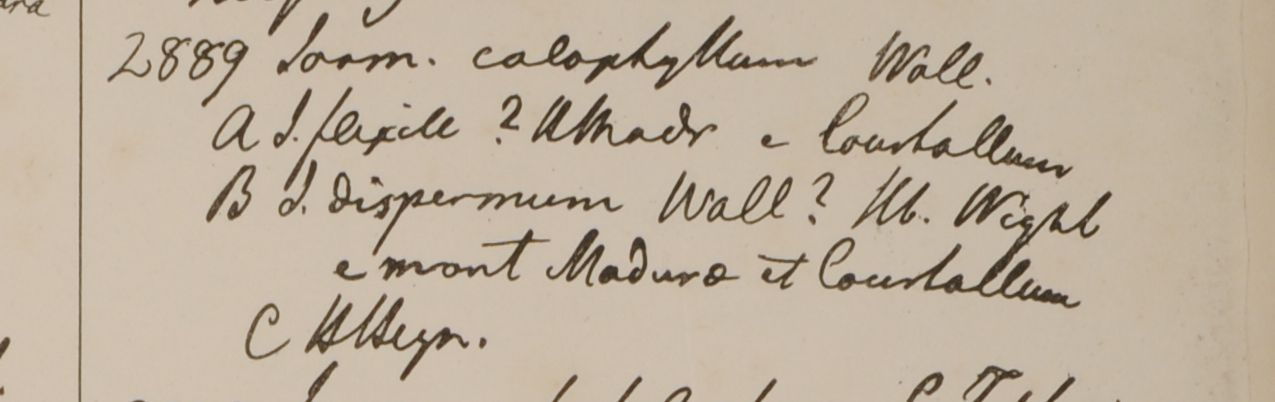 2889 Jasm. calophyllum Wall.
A J. flexile ? HMadr e Courtallum
B J. dispermum Wall? Hb. Wight
e mont Madura et Courtallum
C HHeyn.